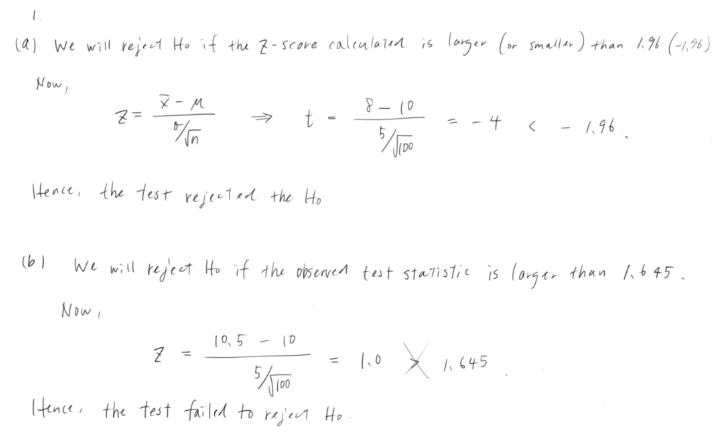 1.
(a) We will reject Ho if the z-score calculated is larger (or smaller) than 1.96 (-1.96)
Now,
z = (x̄ - μ) / (σ/√n) ⇒ t = (8 - 10) / (5/√100) = -4 < -1.96.
Hence, the test rejected the Ho
(b) We will reject Ho if the observed test statistic is larger than 1.645.
Now,
z = (10.5 - 10) / (5/√100) = 1.0 ≯ 1.645.
Hence, the test failed to reject Ho.